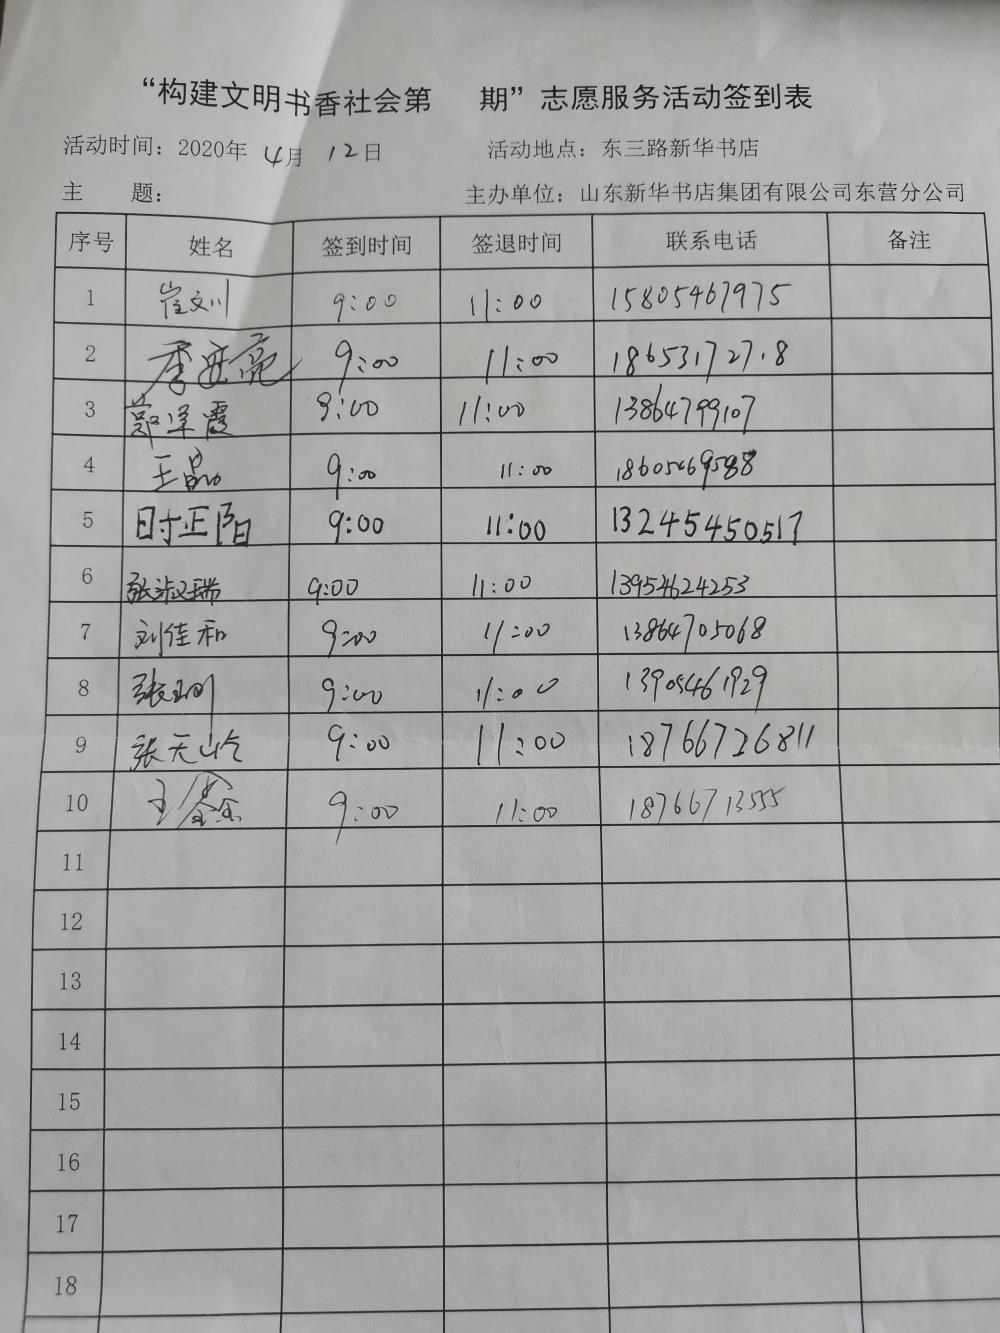 “构建文明书香社会第 期”志愿服务活动签到表
活动时间：2020年 4月 12日 活动地点：东三路新华书店
主 题： 主办单位：山东新华书店集团有限公司东营分公司
序号 姓名 签到时间 签退时间 联系电话 备注
1 崔文川 9:00 11:00 15805467975
2 9:00 11:00
3 郭泽霞 9:00 11:00 13864799107
4 王晶 9:00 11:00
5 时正阳 9:00 11:00 13245450517
6 张淑瑞 9:00 11:00 13954624253
7 刘佳和 9:00 11:00 13864705068
8 9:00 11:00 13905461929
9 张天岭 9:00 11:00 18766726811
10 9:00 11:00 18766713555
11
12
13
14
15
16
17
18